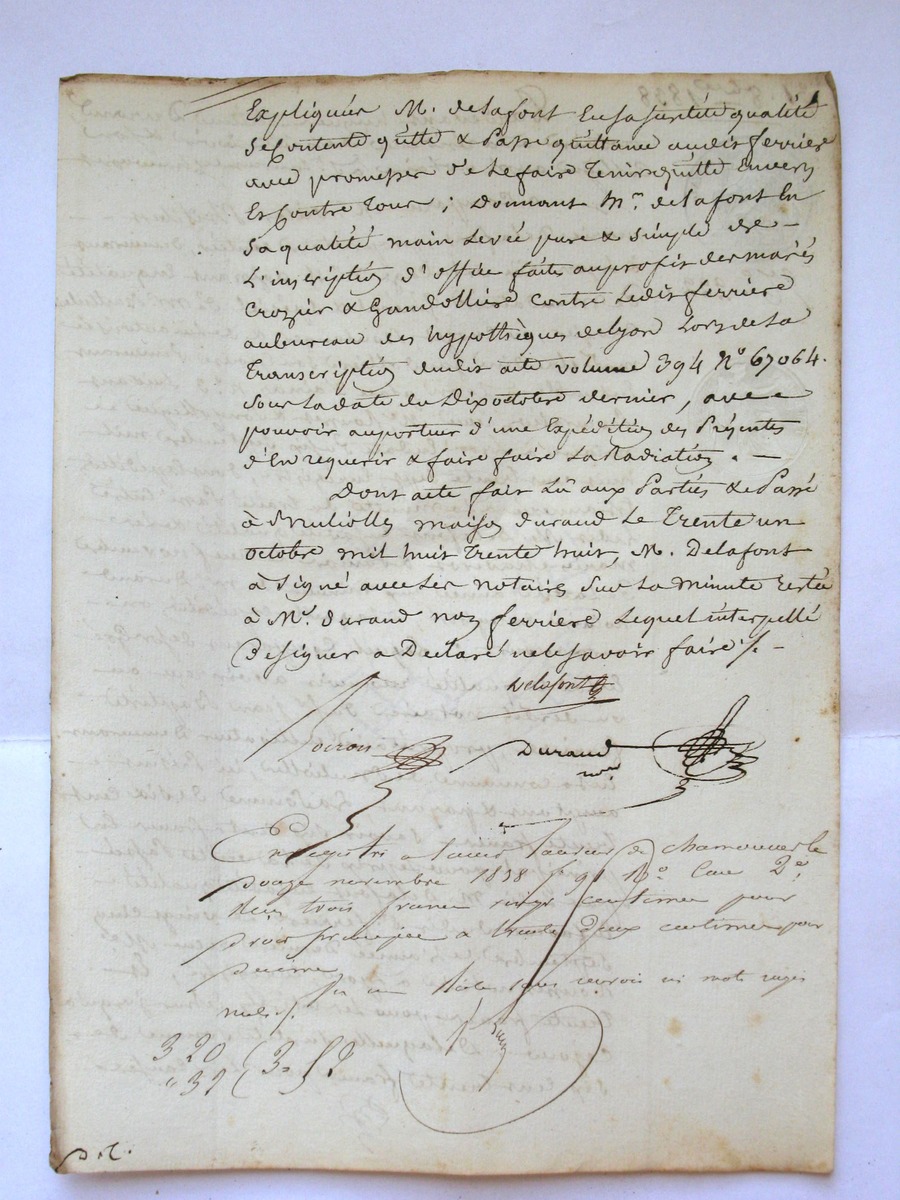 Expliquées M. delafont En sa susdite qualité
se Contente quitte & Passe quittance audit ferriere
avec promesse de Le faire Tenir quitte Envers
Et Contre Tous ; Donnant Mr. delafont En
sa qualité main Levée pure & simple de
L'inscription d'office faite au profit des mariés
Crozier & Gandolliere contre Ledit ferriere
au bureau des hypothèques de Lyon Lors de La
Transcription dudit acte volume 394 No 67064.
sous La date du Dix octobre dernier, avec
pouvoir au porteur d'une Expédition des Présentes
d'En requerir & faire faire La Radiation. —
Dont acte fait Lû aux Parties & Passé
à maison durand Le Trente un
octobre mil huit Trente huit, M. Delafont
à signé avec Les notaires sur La minute restée
à Me. durand non ferriere Lequel interpellé
De signer a Declaré ne le savoir faire /. —
Delafont
Durand
nre
Enregistré a de chamousset le
douze novembre 1838 fo 91 Ro Case 2e,
Reçu trois francs vingt centimes pour
droit principal & trente deux centimes pour
decime
mots rayés
nuls /.
3 20
" 32 ( 3. 52
p. c.